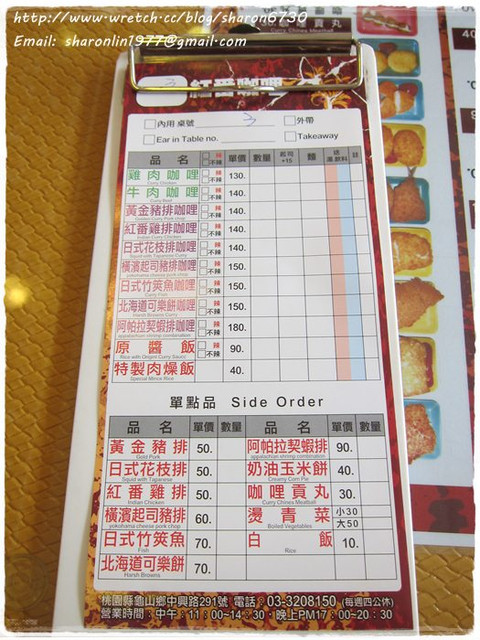 http://www.wretch.cc/blog/sharon6730
Email: sharonlin1977@gmail.com
3
紅番咖哩
□內用 桌號 3 □外帶
□Ear in Table no. □Takeaway
品 名 □辣 □不辣 單價 數量 起司+15 麵 湯 飲料 註
雞肉咖哩 □辣 □不辣 130.
Curry Chicken
牛肉咖哩 □辣 □不辣 140.
Curry Beef
黃金豬排咖哩 □辣 □不辣 140.
Golden Curry Pork chop
紅番雞排咖哩 □辣 □不辣 140.
Indian Curry Chicken
日式花枝排咖哩 □辣 □不辣 140.
Squid with Tapanese Curry
橫濱起司豬排咖哩 □辣 □不辣 150.
yokohama cheese pork chop
日式竹筴魚咖哩 □辣 □不辣 150.
Curry Fish
北海道可樂餅咖哩 □辣 □不辣 150.
Harsh Browns Curry
阿帕拉契蝦排咖哩 □辣 □不辣 180.
appalachian shrimp combination
原醬飯 □辣 □不辣 90.
Rice with Origint Curry Sauce
特製肉燥飯 40.
Special Mince Rice
單點品 Side Order
品 名 單價 數量 品 名 單價 數量
黃金豬排 50. 阿帕拉契蝦排 90.
Gold Pork appalachian shrimp combination
日式花枝排 50. 奶油玉米餅 40.
Squid with Tapanese Creamy Corn Pie
紅番雞排 50. 咖哩貢丸 30.
Indian Chicken Curry Chines Meatball
橫濱起司豬排 60. 燙青菜 小30 大50
yokohama cheese pork chop Boiled Vegetables
日式竹筴魚 70. 白飯 10.
Fish Rice
北海道可樂餅 70.
Harsh Browns
桃園縣龜山鄉中興路291號 電話：03-3208150 (每週四公休)
營業時間：中午：11:00~14:30・晚上PM17:00~20:30
貢丸
Curry Chines Meatball